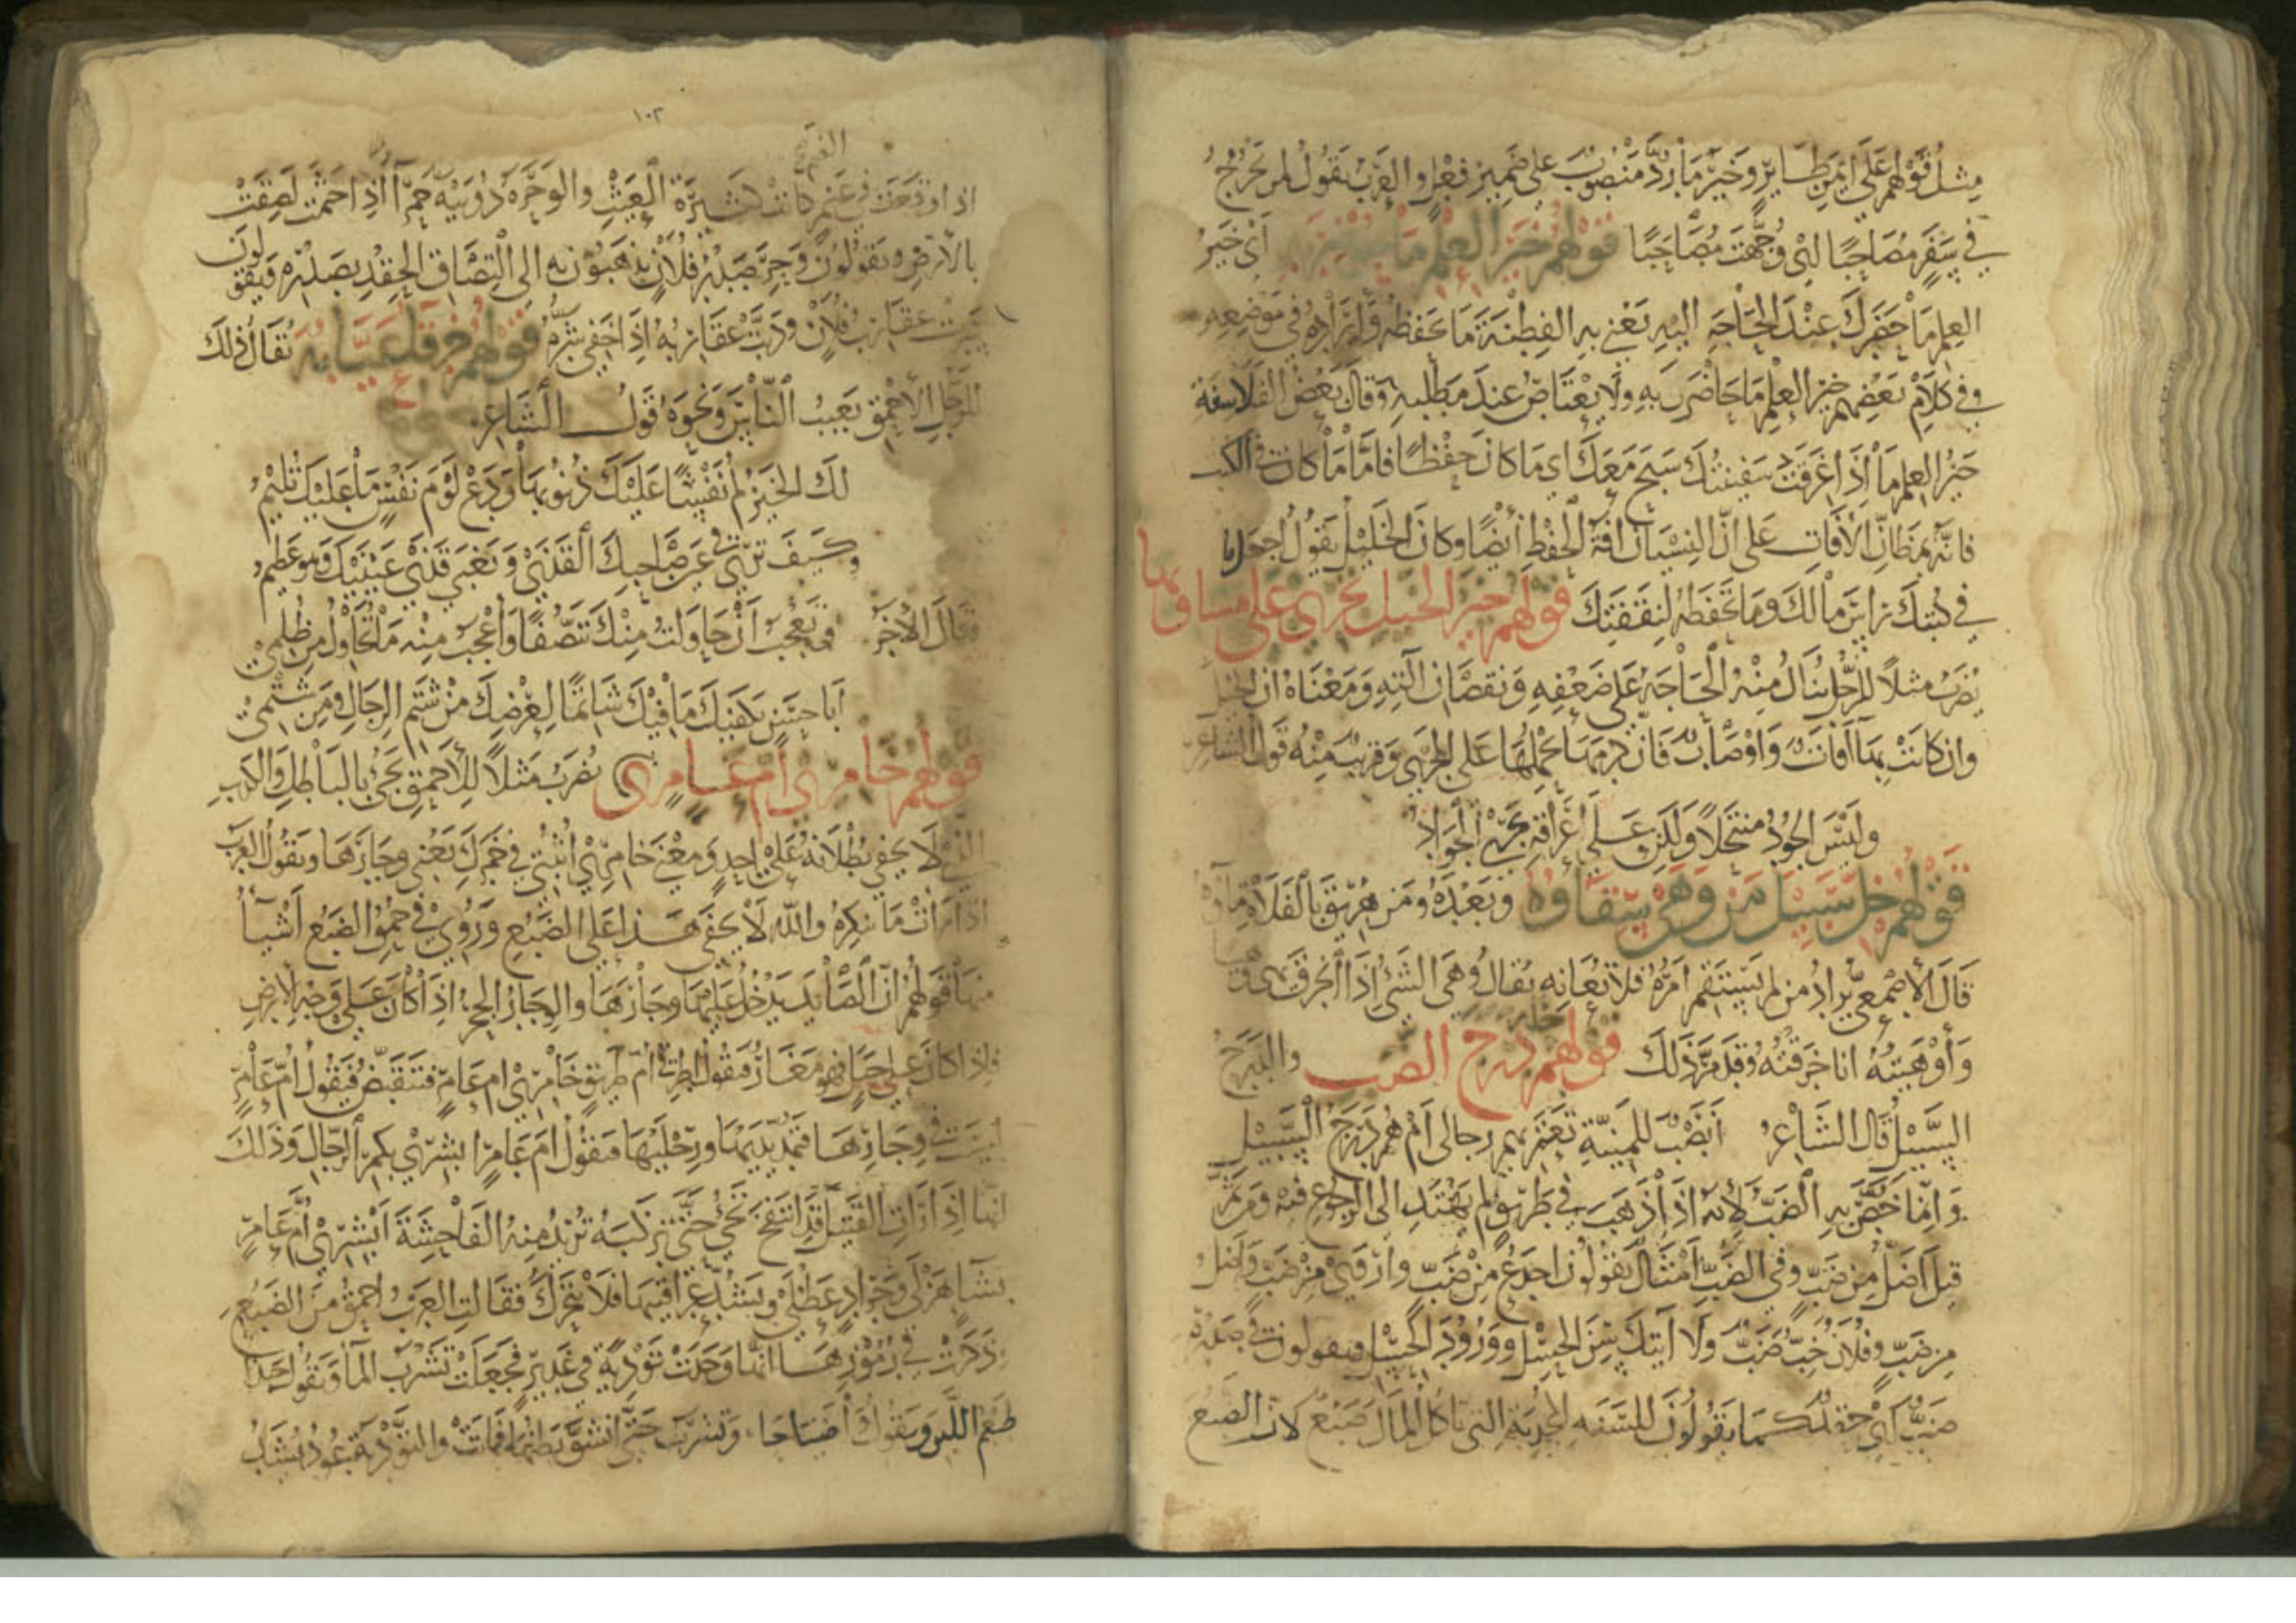 مثل قولهم على ايمن طاير وخير ما رد منصوب على ضمير فعل والعرب تقول لمن يخرج
في سفر مصاحبا اي وجهت مصاحبا قولهم خير العلم ما حوضر به اي خير
العلم ما حضرك عند الحاجة اليه يعني به الفطنة ما تحفظه وايراده في موضعه
وفي كلام بعضهم خير العلم ما حاضرت به ولا يعتاص عند مطلبه وقال بعض الفلاسفة
خير العلم ما اذا غرقت سفينتك سبح معك اي ما كان حفظا فاما ما كان في الكتب
فانه مظان الافات على ان النسيان افة الحفظ ايضا وكان الخليل يقول اجعل ما
في كتبك راس مالك وما تحفظه لنفقتك قولهم خير الخيل تجري على مساويها
يضرب مثلا للرجل ينال منه الحاجة على ضعفه ونقصان آلته ومعناه ان الخيل
وان كانت بها آفات واوصاب فان كرمها يحملها على الجري وقريب منه قول الشاعر
وليس الجود منتحلا ولكن على اعراقه يجري الجواد
قولهم خل سبيل من وهى سقاؤه وبعده ومن هريق بالفلاة ماؤه
قال الاصمعي يراد من لم يستقم امره فلا تعانه يقال وهى الشي اذا انخرق يهي وهيا
واوهيته انا خرقته وقد مر ذلك قولهم خله درج الضب والدرج
السبيل قال الشاعر انصب للمنية تعتريهم رجالي ام هم درج السبيل
وانما خص به الضب لانه اذا ذهب في طريق لم يهتد الى الرجوع فيه ومن ثم
قيل اضل من ضب وفي الضب امثال يقولون اخدع من ضب واروى من ضب واضل
من ضب وفلان خب ضب ولا آتيك سن الحسل وورود الحسل ويقولون في صدره
ضب اي حقد كما يقولون للسنة الجدبة التي تاكل المال ضبع لان الضبع
١٠٢
الغنم
اذا وقعت في غنم كانت كثيرة العيث والوحرة دويبة حمرا اذا جثمت لصقت
بالارض ويقولون وحر صدر فلان يذهبون به الى التصاق الحقد بصدره فيقولون
سرت عقارب فلان ودبت عقاربه اذا خفي شره قولهم خرقا عيابه يقال ذلك
للرجل الاحمق يعيب الناس ونحوه قول الشاعر
لك الخير لم نفسا عليك ذنوبها ودع لوم نفس ما عليك تليم
وكيف ترى في عين صاحبك القذى ويخفى قذى عينيك وهو عظيم
وقال الاخر ومن عجب ان حاولت منك تنصفا واعجب منه ما تحاول من ظلمي
ابا حسن يكفيك ما فيك شاتما لعرضك من شتم الرجال ومن شتمي
قولهم خامري ام عامر يضرب مثلا للاحمق يجي بالباطل والكذب
الذي لا يخفى بطلانه على احد ومعنى خامري اثبتي في خمرك يعني وجارها ويقول العرب
اذا رات ما تنكره والله لا يخفى هذا على الضبع وروي في حمق الضبع اشيا
منها قولهم ان الصايد يدخل عليها وجارها والوجار الجحر اذا كان على وجه الارض
فاذا كان في جبل فهو مغار فيقول اطرقي ام طريق خامري ام عامر فتنقبض فيقول ام عامر
ليست في وجارها فتمد يديها ورجليها فيقول ام عامر ابشري بكمر الرجال وذلك
انها اذا رات القتيل قد انتفخ تجي حتى تركبه تريد منه الفاحشة ابشري ام عامر
بشا هزلى وجراد عظلى ويشد عراقيبها فلا تتحرك فقالت العرب احمق من الضبع
وذكرت في رموزها انها وجدت تودية في غدير فجعلت تشرب الما وتقول حبذا
طعم اللبن ويقول اضياحا وتشرب حتى انشق بطنها فماتت والتودية عود يشد